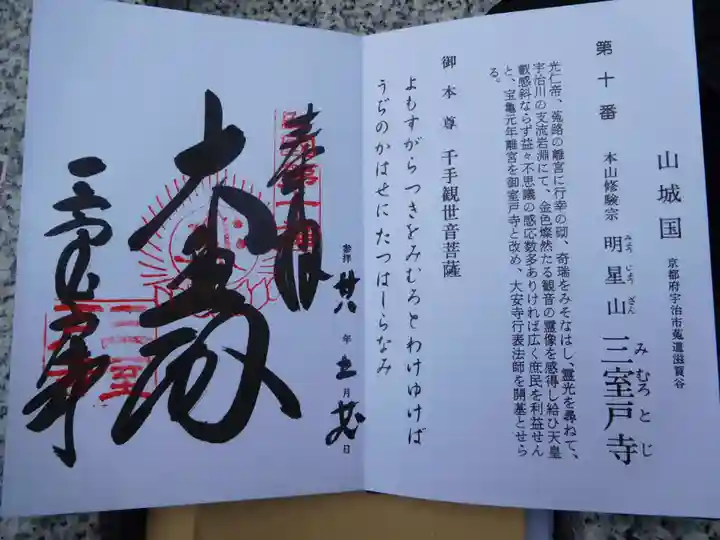 山城国 京都府宇治市菟道滋賀谷
第十番 本山修験宗 明星山 三室戸寺
みょうじょうざん
みむろとじ
光仁帝、菟路の離宮に行幸の砌、奇瑞をみそなはし、霊光を尋ねて、
宇治川の支流岩淵にて、金色燦然たる観音の霊像を感得し給ひ天皇
叡感斜ならず益々不思議の感応数多ありければ広く庶民を利益せん
と、宝亀元年離宮を御室戸寺と改め、大安寺行表法師を開基とせら
る。
御本尊 千手観世音菩薩
よもすがらつきをみむろとわけゆけば
うぢのかはせにたつはしらなみ
奉拝
参拝 廿八年 月 日
大悲殿
三室戸寺